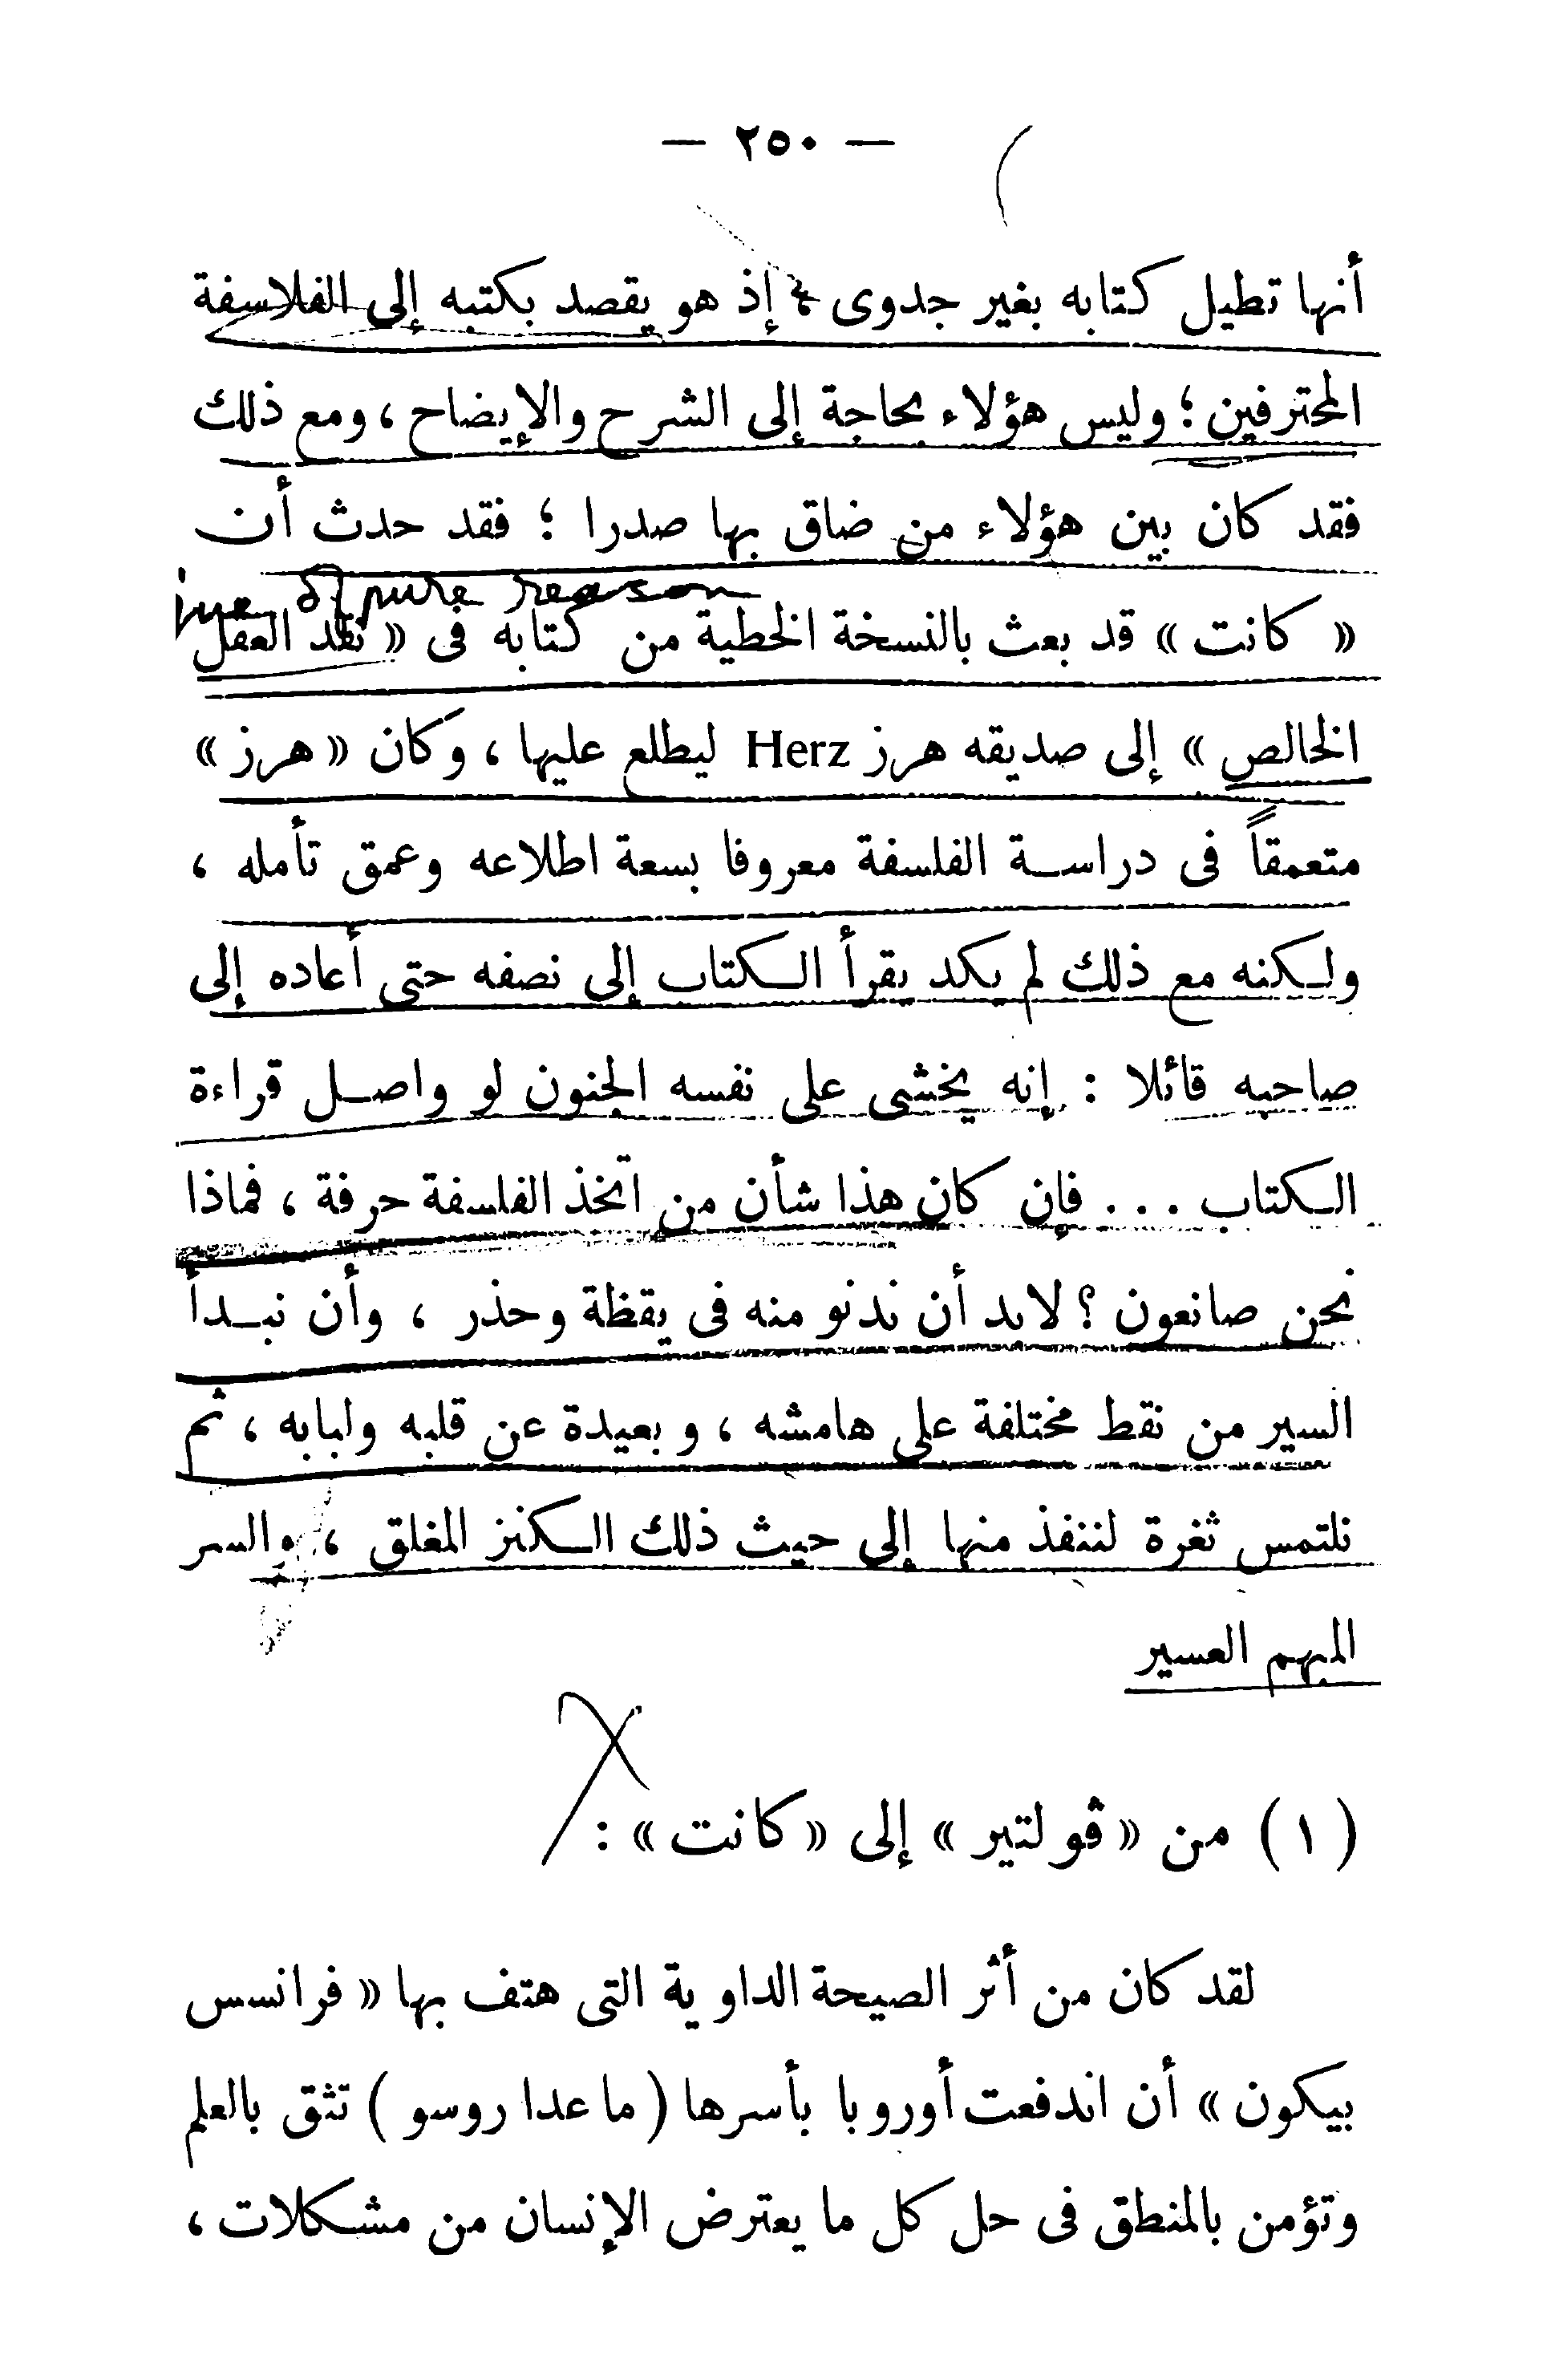 — ٢٥٠ —
أنها تطيل كتابه بغير جدوى ؛ إذ هو يقصد بكتبه إلى الفلاسفة
المحترفين ؛ وليس هؤلاء بحاجة إلى الشرح والإيضاح ، ومع ذلك
فقد كان بين هؤلاء من ضاق بها صدرا ؛ فقد حدث أن
of pure reason
« كانت » قد بعث بالنسخة الخطية من كتابه فى « نقد العقل
الخالص » إلى صديقه هرز Herz ليطلع عليها ، وكان « هرز »
متعمقاً فى دراسة الفلسفة معروفا بسعة اطلاعه وعمق تأمله ،
ولكنه مع ذلك لم يكد يقرأ الكتاب إلى نصفه حتى أعاده إلى
صاحبه قائلا : إنه يخشى على نفسه الجنون لو واصل قراءة
الكتاب . . . فإن كان هذا شأن من اتخذ الفلسفة حرفة ، فماذا
نحن صانعون ؟ لابد أن ندنو منه فى يقظة وحذر ، وأن نبدأ
السير من نقط مختلفة على هامشه ، وبعيدة عن قلبه ولبابه ، ثم
نلتمس ثغرة لننفذ منها إلى حيث ذلك الكنز المغلق ، والسر
المبهم العسير
( ١ ) من « ڤولتير » إلى « كانت » :
لقد كان من أثر الصيحة الداوية التى هتف بها « فرانسس
بيكون » أن اندفعت أوروبا بأسرها ( ما عدا روسو ) تثق بالعلم
وتؤمن بالمنطق فى حل كل ما يعترض الإنسان من مشكلات ،